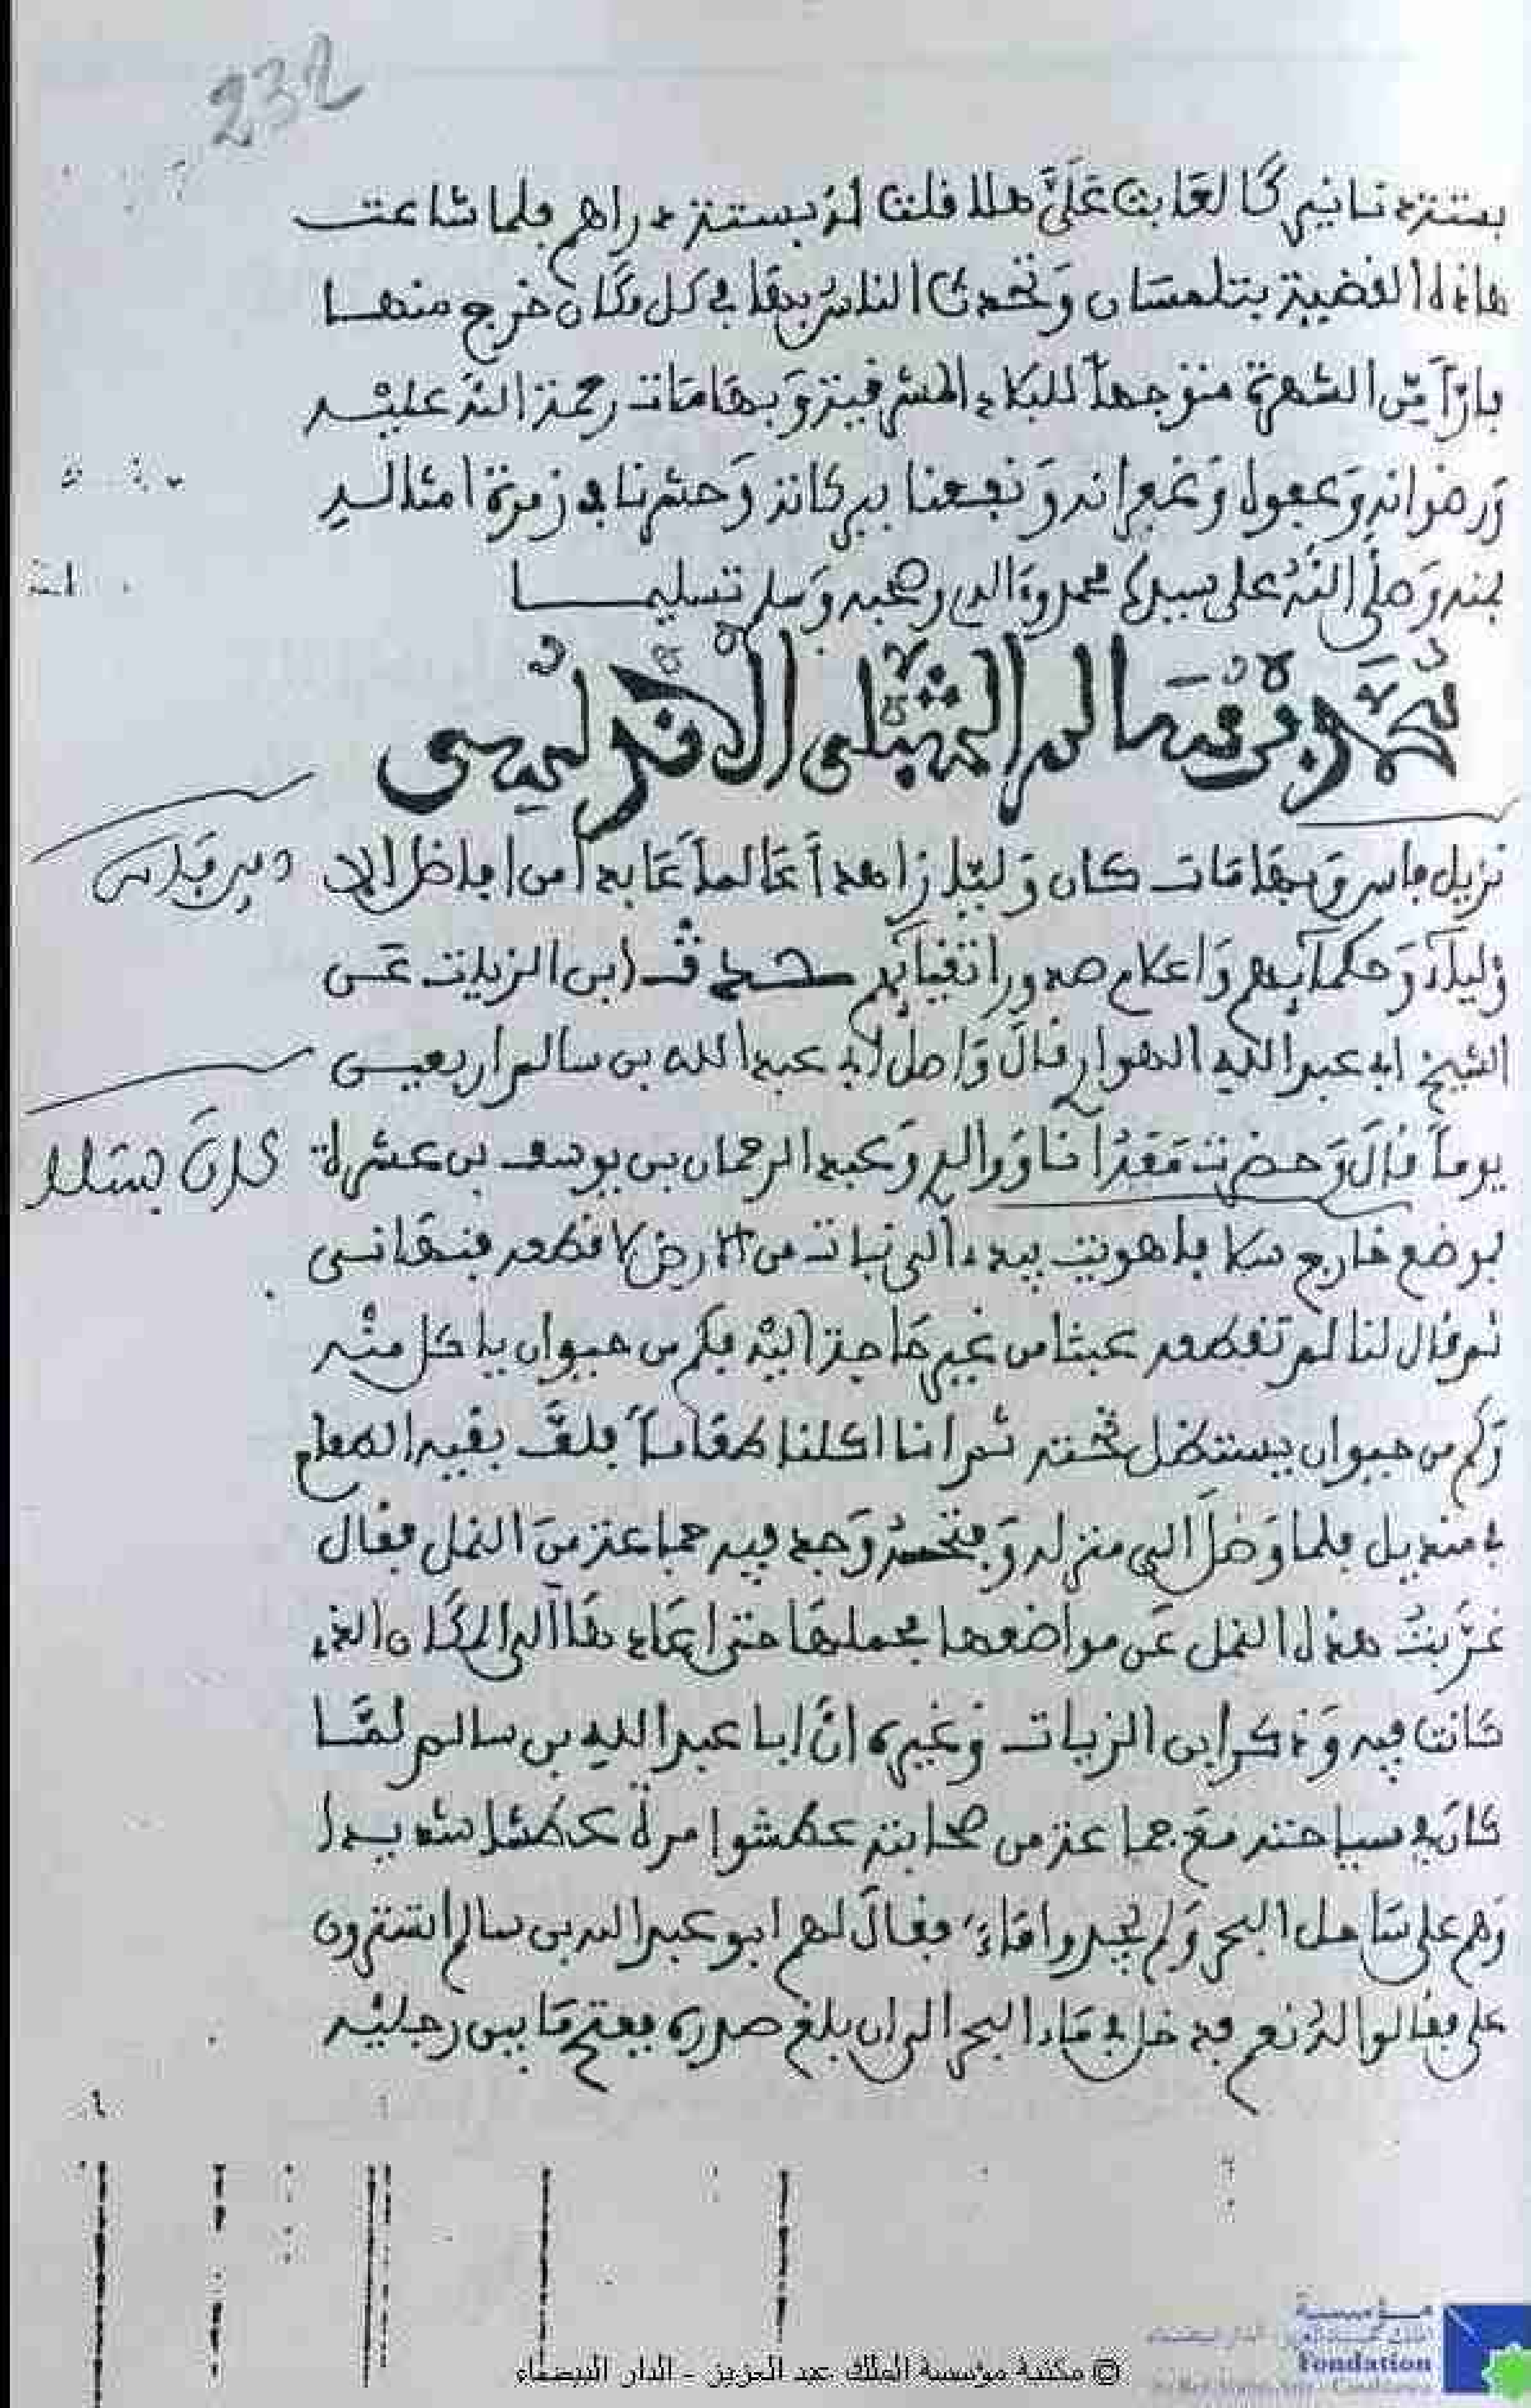 232
بستة دنانير كالعاتب عليَّ هلا قلت له بستة دراهم فلما شاعت
هاذه القضية بتلمسان وتحدث الناس بها في كل مكان خرج منها
بارّا من الشهرة متوجها للبلاد المشرقية وبها مات رحمة الله عليه
ورضوانه وعفوه وغفرانه ونفعنا ببركاته وحشرنا في زمرة امثاله
بمنه وصلى الله على سيدنا محمد وءاله وصحبه وسلم تسليما
محمد بن سالم الشلبي الاندلسي
نزيل فاس وبها مات كان وليّا زاهدا عالما عابدا من افاضل الا
وليآء وحكمآيهم واعلام صدور اتقيآيهم حدث ابن الزيات عن
الشيخ ابي عبد الله الهواري قال واصل ابو عبد الله بن سالم اربعين
يوما قال وحضرت معه انا ووالدي وعبد الرحمان بن يوسف بن عشرة
بموضع خارج سلا فاهويت بيدي الى نبات من الارض لاقطعه فنهاني
ثم قال لنا لم تقطعه عبثا من غير حاجة اليه فكم من حيوان ياكل منه
وكم من حيوان يستظل تحته ثم انا اكلنا طعاما فلفّ بقية الطعام
في منديل فلما وصل الى منزله وفتحه وجد فيه جماعة من النمل فقال
غرّبتُ هذه النمل عن مواضعها فحملها حتى اعادها الى المكان الذي
كانت فيه وذكر ابن الزيات وغيره انّ ابا عبد الله بن سالم لمّا
كان في سياحته مع جماعة من صحابته عطشوا مرة عطشا شديدا
وهم على ساحل البحر ولم يجدوا ماء فقال لهم ابو عبد الله بن سالم اتسترون
علي فقالوا له نعم فدخل في ماء البحر الى ان بلغ صدره ففتح ما بين رجليه
© مكتبة مؤسسة الملك عبد العزيز - الدار البيضاء
مؤسسة
Fondation